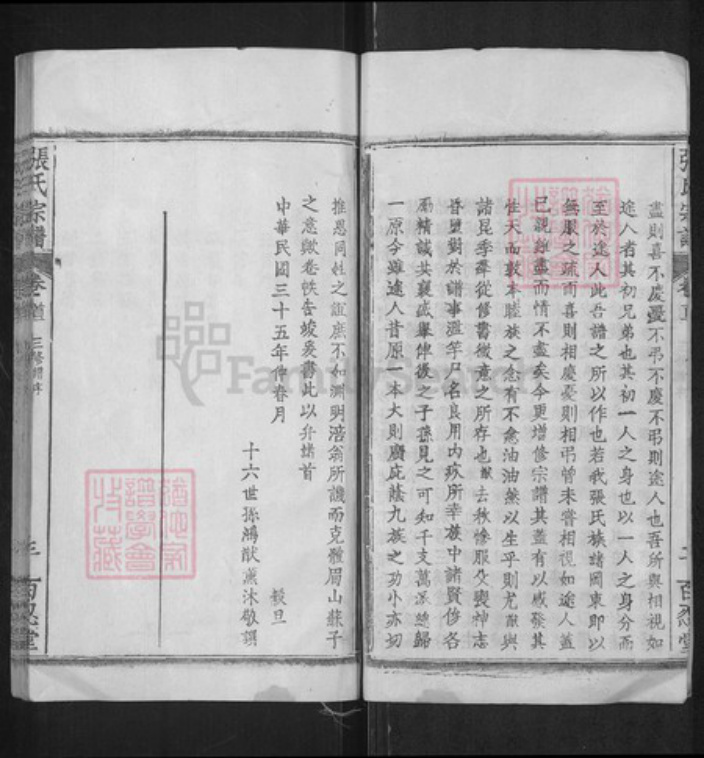 張氏宗譜
盡則喜不慶憂不弔不慶不弔則途人也吾所與相視如
途人者其初兄弟也其初一人之身也以一人之身分而
至於途人此吾譜之所以作也若我張氏族諸岡東即以
無服之疏而喜則相慶憂則相弔曾未嘗相視如途人蓋
已說雖盡而情不盡矣今更增修宗譜其蓋有以感發其
性天而敦本睦族之念有不禽油油然以生乎則尤猷與
諸昆季羣從修書微意之所存也猷去秋慘服父喪神志
昏墮對於譜事濫竽尸名良用內疚所幸族中諸賢俢各
屬精誠共襄盛舉俾後之子孫見之可知千支萬派總歸
一原今雖途人昔原一本大則廣庇蔭九族之功小亦切
二 百忍堂
推恩同姓之誼庶不如淵明涪翁所譏而克體眉山蘇子
之意歟卷帙告竣爰書此以弁諸首
中華民國三十五年仲春月 穀旦
十六世孫鴻猷薰沐敬譔
張氏宗譜 卷首 三修譜序 百忍堂
猶他家譜學會收藏
FamilySearch